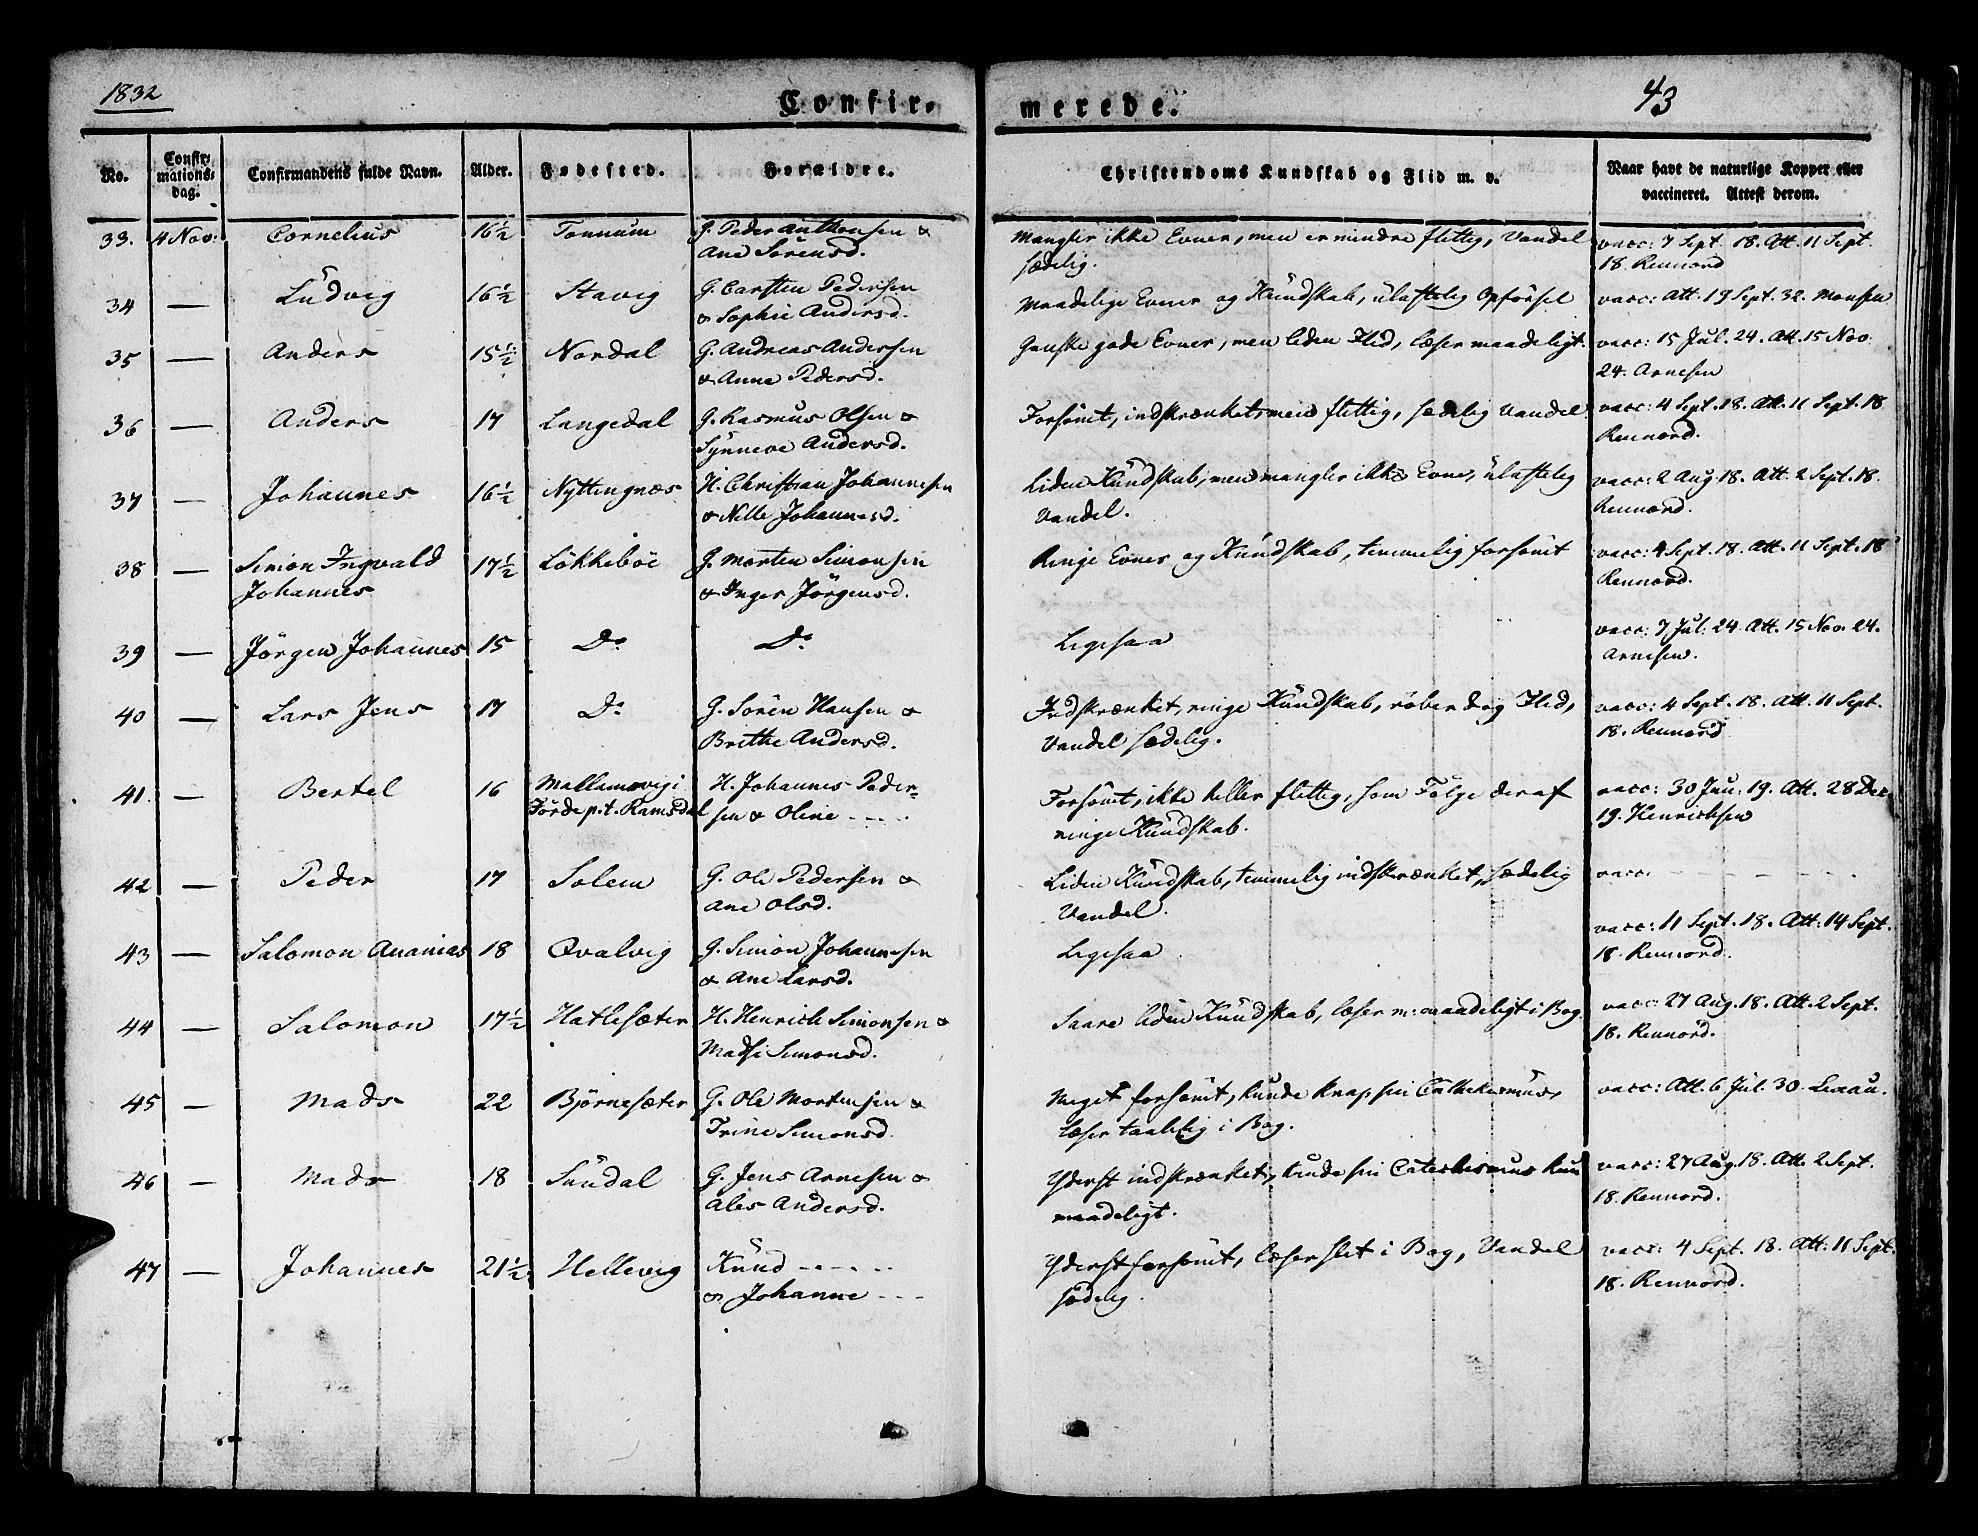 1832
Confir-
merede.
43
No.
Confir-
mations-
dag.
Confirmandens fulde Navn.
Alder.
Fødested.
Forældre.
Christendoms Kundskab og Flid m. v.
Naar havt de naturlige Kopper eller
vaccineret. Attest derom.
33. 4 Nov: Cornelius 16½ Tonnum G. Peder Anthonsen &
Ane Sörensd.
Mangler ikke Evner, men er mindre flittig, Vandel
sædelig.
vacc: 7 Sept. 18. Att. 11 Sept.
18. Rennord
34 — Ludvig 16½ Stavig G. Carsten Pedersen
& Sophie Andersd.
Maadelige Evner og Kundskab, ulastelig Opförsel
vacc: Att. 19 Sept. 32. Monsen
35 — Anders 15½ Nordal G. Andreas Andersen
& Anne Pedersd.
Ganske gode Evner, men liden Flid, læser maadeligt.
vacc: 15 Jul. 24. Att. 15 Nov.
24. Arnesen
36 — Anders 17 Langedal G. Rasmus Olsen &
Synneve Andersd.
Forsömt, indskrænket, men flittig, sædelig Vandel
vacc: 4 Sept. 18. Att. 11 Sept. 18
Rennord.
37 — Johannes 16½ Nyttingnæs H. Christian Johannesen
& Nille Johannesd.
Liden Kundskab, men mangler ikke Evner, ulastelig
Vandel.
vacc: 2 Aug. 18. Att. 2 Sept. 18.
Rennord.
38 — Simon Ingvald
Johannes 17½ Lökkeböe G. Morten Simonsen
& Inger Jörgensd.
Ringe Evner og Kundskab, temmelig forsömt
vacc: 4 Sept. 18. Att. 11 Sept. 18
Rennord.
39 — Jörgen Johannes 15 Do Do
Ligesaa
vacc: 7 Jul: 24. Att. 15 Nov. 24.
Arnesen.
40 — Lars Jens 17 Do G. Sören Hansen &
Brithe Andersd.
Indskrænket, ringe Kundskab, röber dog Flid,
Vandel sædelig.
vacc: 4 Sept. 18. Att. 11 Sept.
18. Rennord
41. — Bertel 16 Mallamsvig i
Förde p.t. Ramsdal H. Johannes Peder-
sen & Oline - - - -
Forsömt, ikke heller flittig, som Fölge deraf
ringe Kundskab.
vacc: 30 Jun: 19. Att. 28 Dec.
19. Henrichsen
42 — Peder 17 Solem G. Ole Pedersen &
Ane Olsd.
Liden Kundskab, temmelig indskrænket, sædelig
Vandel.
vacc: — — — —
43 — Salomon Ananias 18 Qvalvig G. Simon Johannesen
& Ane Larsd.
Ligesaa
vacc: 11 Sept. 18. Att: 14 Sept.
18. Rennord.
44 — Salomon 17½ Hatlesæter H. Henrich Simonsen &
Madsi Simonsd.
Saare liden Kundskab, læser m: maadeligt i Bog.
vacc 27 Aug. 18. Att. 2 Sept.
18. Rennord.
45 — Mads 22 Björnesæter G. Ole Mortensen &
Trine Simonsd.
Meget forsömt, kunde knap sin Cathekismus,
læser taalelig i Bog.
vacc: Att. 6 Jul. 30. Lexau.
46 — Mads 18 Sundal G. Jens Arnesen &
Ales Andersd.
Yderst indskrænket, kunde sin Catechismus kun
maadeligt.
vacc: 27 Aug. 18. Att. 2 Sept.
18. Rennord.
47 — Johannes 21½ Hellevig Knud - - - -
& Johanne - - -
Yderst forsömt, læser slet i Bog, Vandel
sædelig.
vacc: 4 Sept. 18. Att: 11 Sept.
18. Rennord.